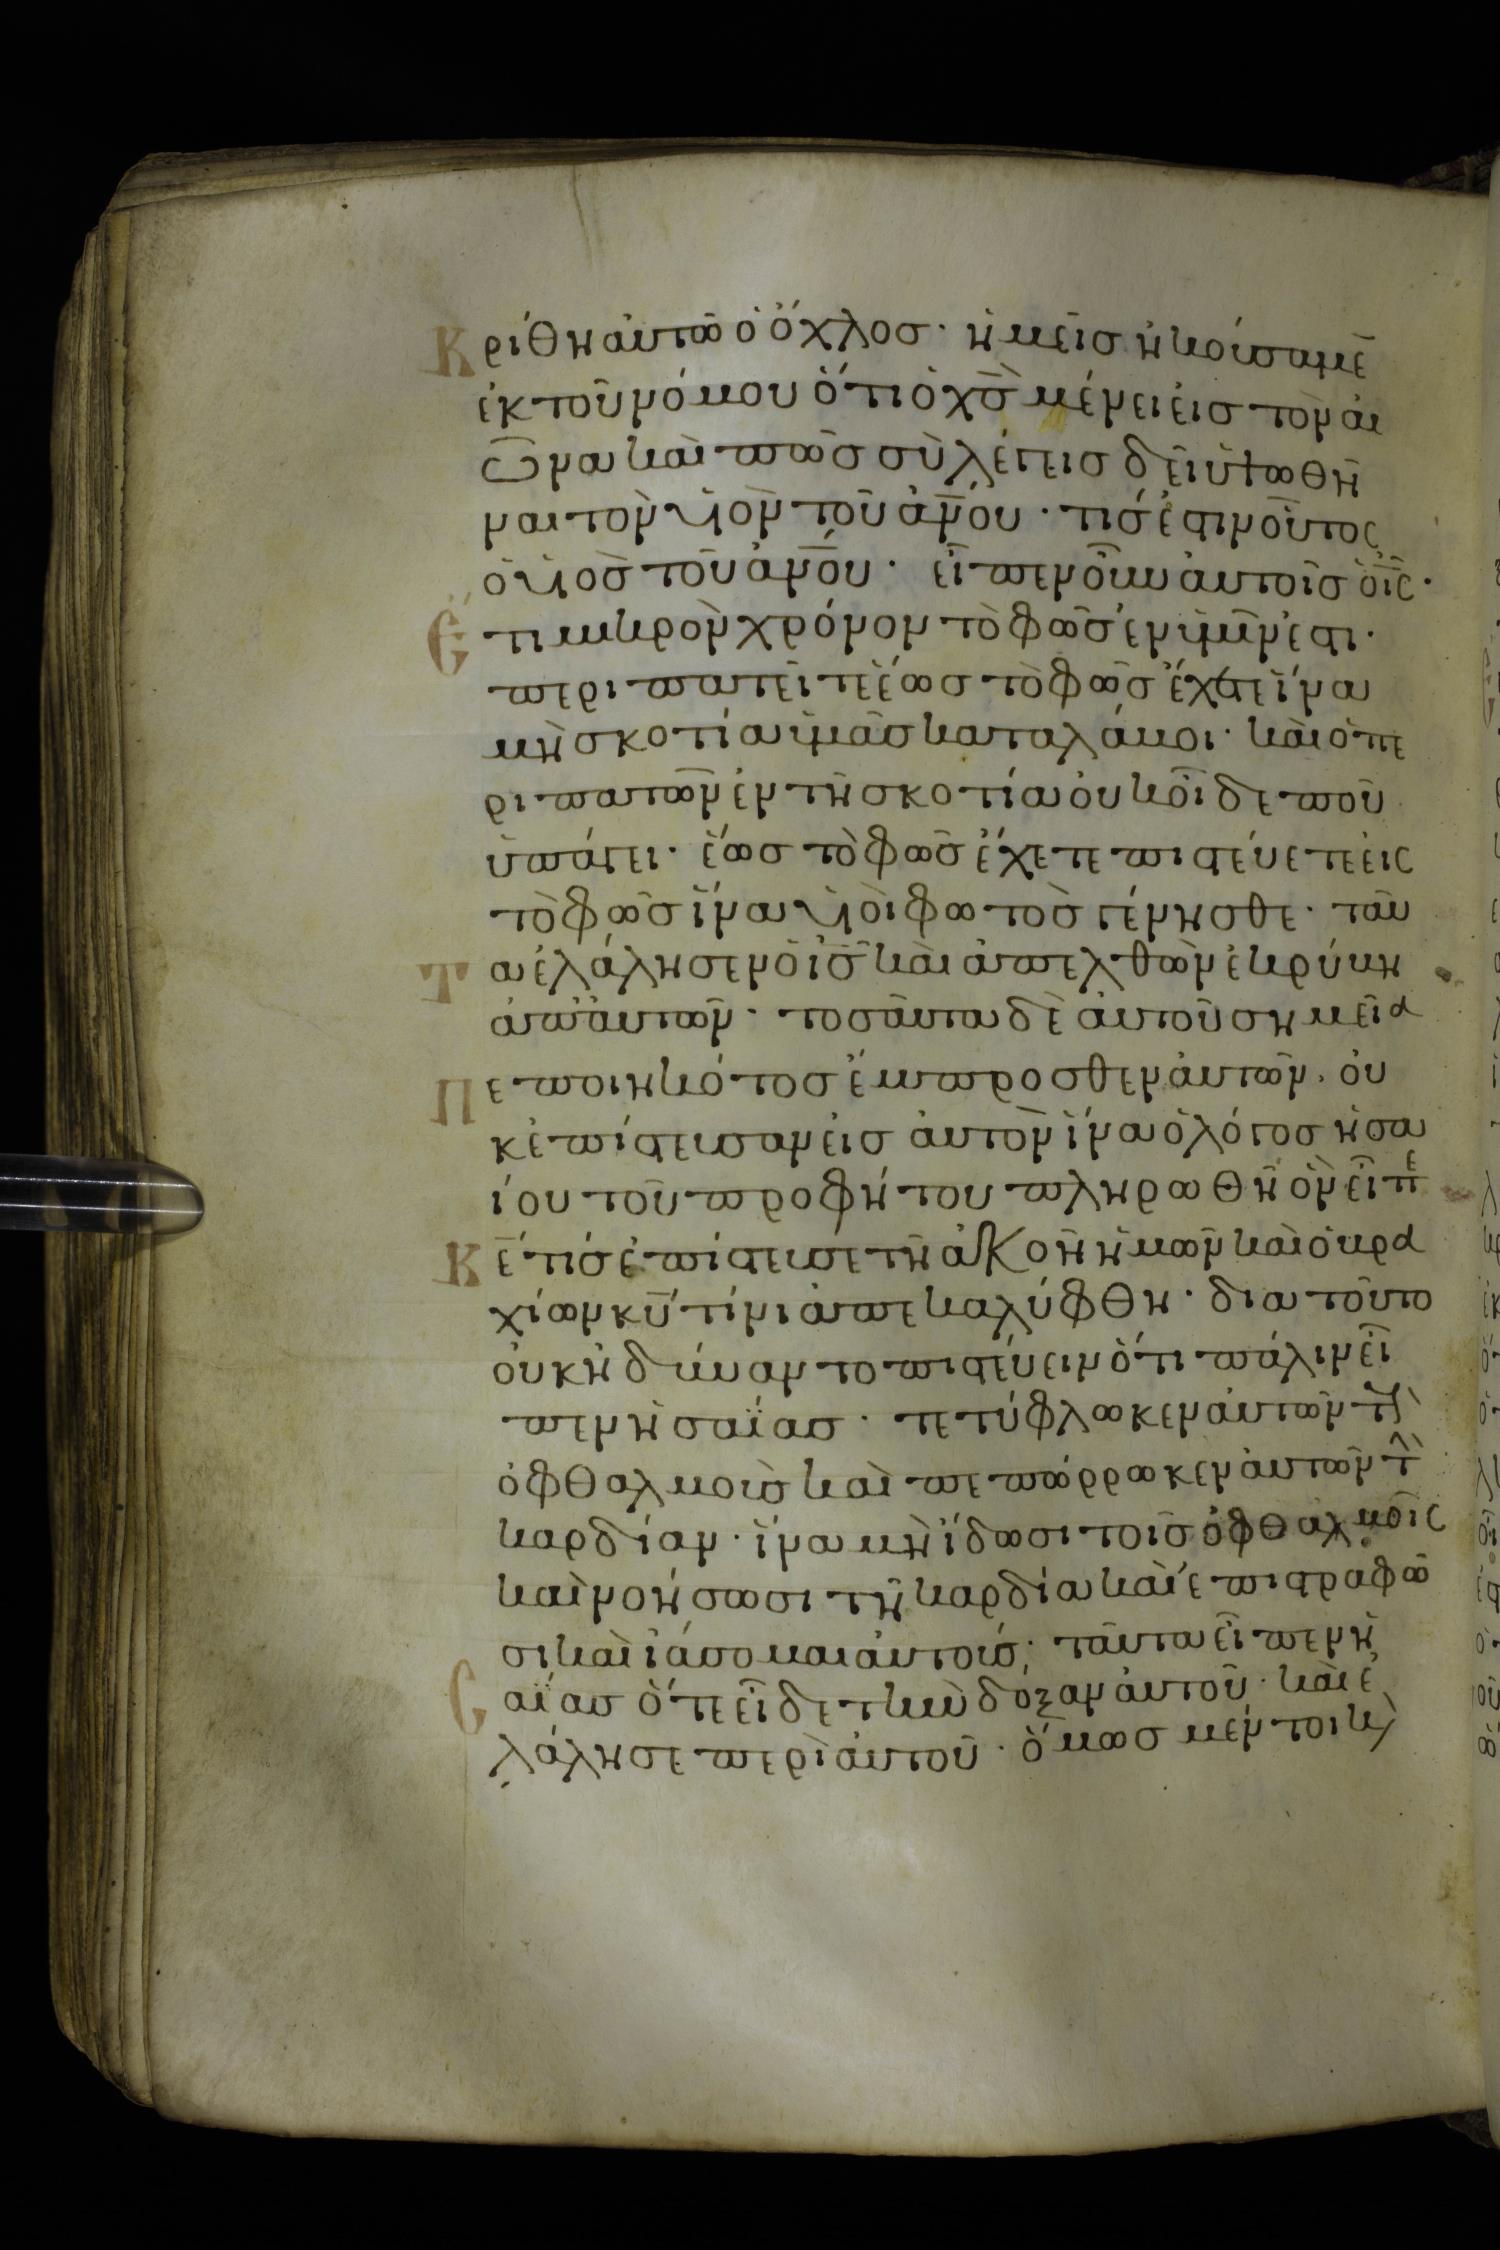 Κρίθη αὐτῶ ὁ ὄχλοσ · ἡμεῖσ ἠκούσαμε̄
ἐκ τοῦ νόμου ὅτι ὁ χ̅σ̅ μένει εἰσ τὸν αἰ
ῶνα καὶ πῶσ σὺ λέγεισ δεῖ ὑψωθῆ
ναι τὸν υἱὸν τοῦ ἀν̅ου · τίσ ἐστιν οὗτος
ὁ υἱὸσ τοῦ ἀν̅ου · εἶπεν οὖν αὐτοῖσ ὁ ι̅ς̅ ·
Ἔτι μικρὸν χρόνον τὸ φῶσ ἐν ὑμῖν ἐστι ·
περιπατεῖτε ἕωσ τὸ φῶσ ἔχετε ἵνα
μὴ σκοτία ὑμᾶσ καταλάβοι · καὶ ὁ πε
ριπατῶν ἐν τῆ σκοτία οὐκ οἶδε ποῦ
ὑπάγει · ἕωσ τὸ φῶσ ἔχετε πιστεύετε εἰς
τὸ φῶσ ἵνα υἱοὶ φωτὸσ γένησθε · ταῦ
Τα ἐλάλησεν ὁ ι̅σ̅ καὶ ἀπελθὼν ἐκρύβη
ἀπ' αὐτῶν · τοσαῦτα δὲ αὐτοῦ σημεῖα
Πεποιηκότοσ ἔμπροσθεν αὐτῶν · οὐ
κ ἐπίστευσαν εἰσ αὐτὸν ἵνα ὁ λόγοσ ἠσα
ίου τοῦ προφήτου πληρωθῆ ὃν εἶπε
Κ̅ε̅ τίσ ἐπίστευσε τῆ ἀκοῆ ἡμῶν καὶ ὁ βρα
χίων κ̅υ̅ τίνι ἀπεκαλύφθη · δια τοῦτο
οὐκ ἠδύναντο πιστεύειν ὅτι πάλιν εἶ
πεν ἡσαΐασ · τετύφλωκεν αὐτῶν τοὺσ
ὀφθαλμοὺσ καὶ πεπώρρωκεν αὐτῶν τὴν
καρδίαν · ἵνα μὴ ἴδωσι τοῖσ ὀφθαλμοῖς
καὶ νοήσωσι τῆ καρδία καὶ ἐπιστραφῶ
σι καὶ ἰάσομαι αὐτούσ · ταῦτα εἶπεν ἡ
Σαΐασ ὅτε εἶδε τὴν δόξαν αὐτοῦ · καὶ ἐ
λάλησε περὶ αὐτοῦ · ὅμωσ μέντοι καὶ